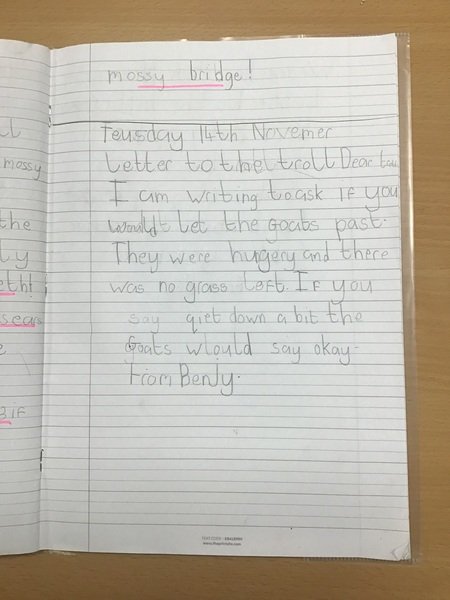 mossy bridge!
ll
mossy
the
ly
eth!
sears
e
g if
Teusday 14th Novemer
Letter to the troll Dear
I am writing to ask If you
would let the goats past.
They were hugery and there
was no grass left. If you
say quiet down a bit the
goats would say okay.
from Benjy.
TEXT CODE:
www.theprintsite.com